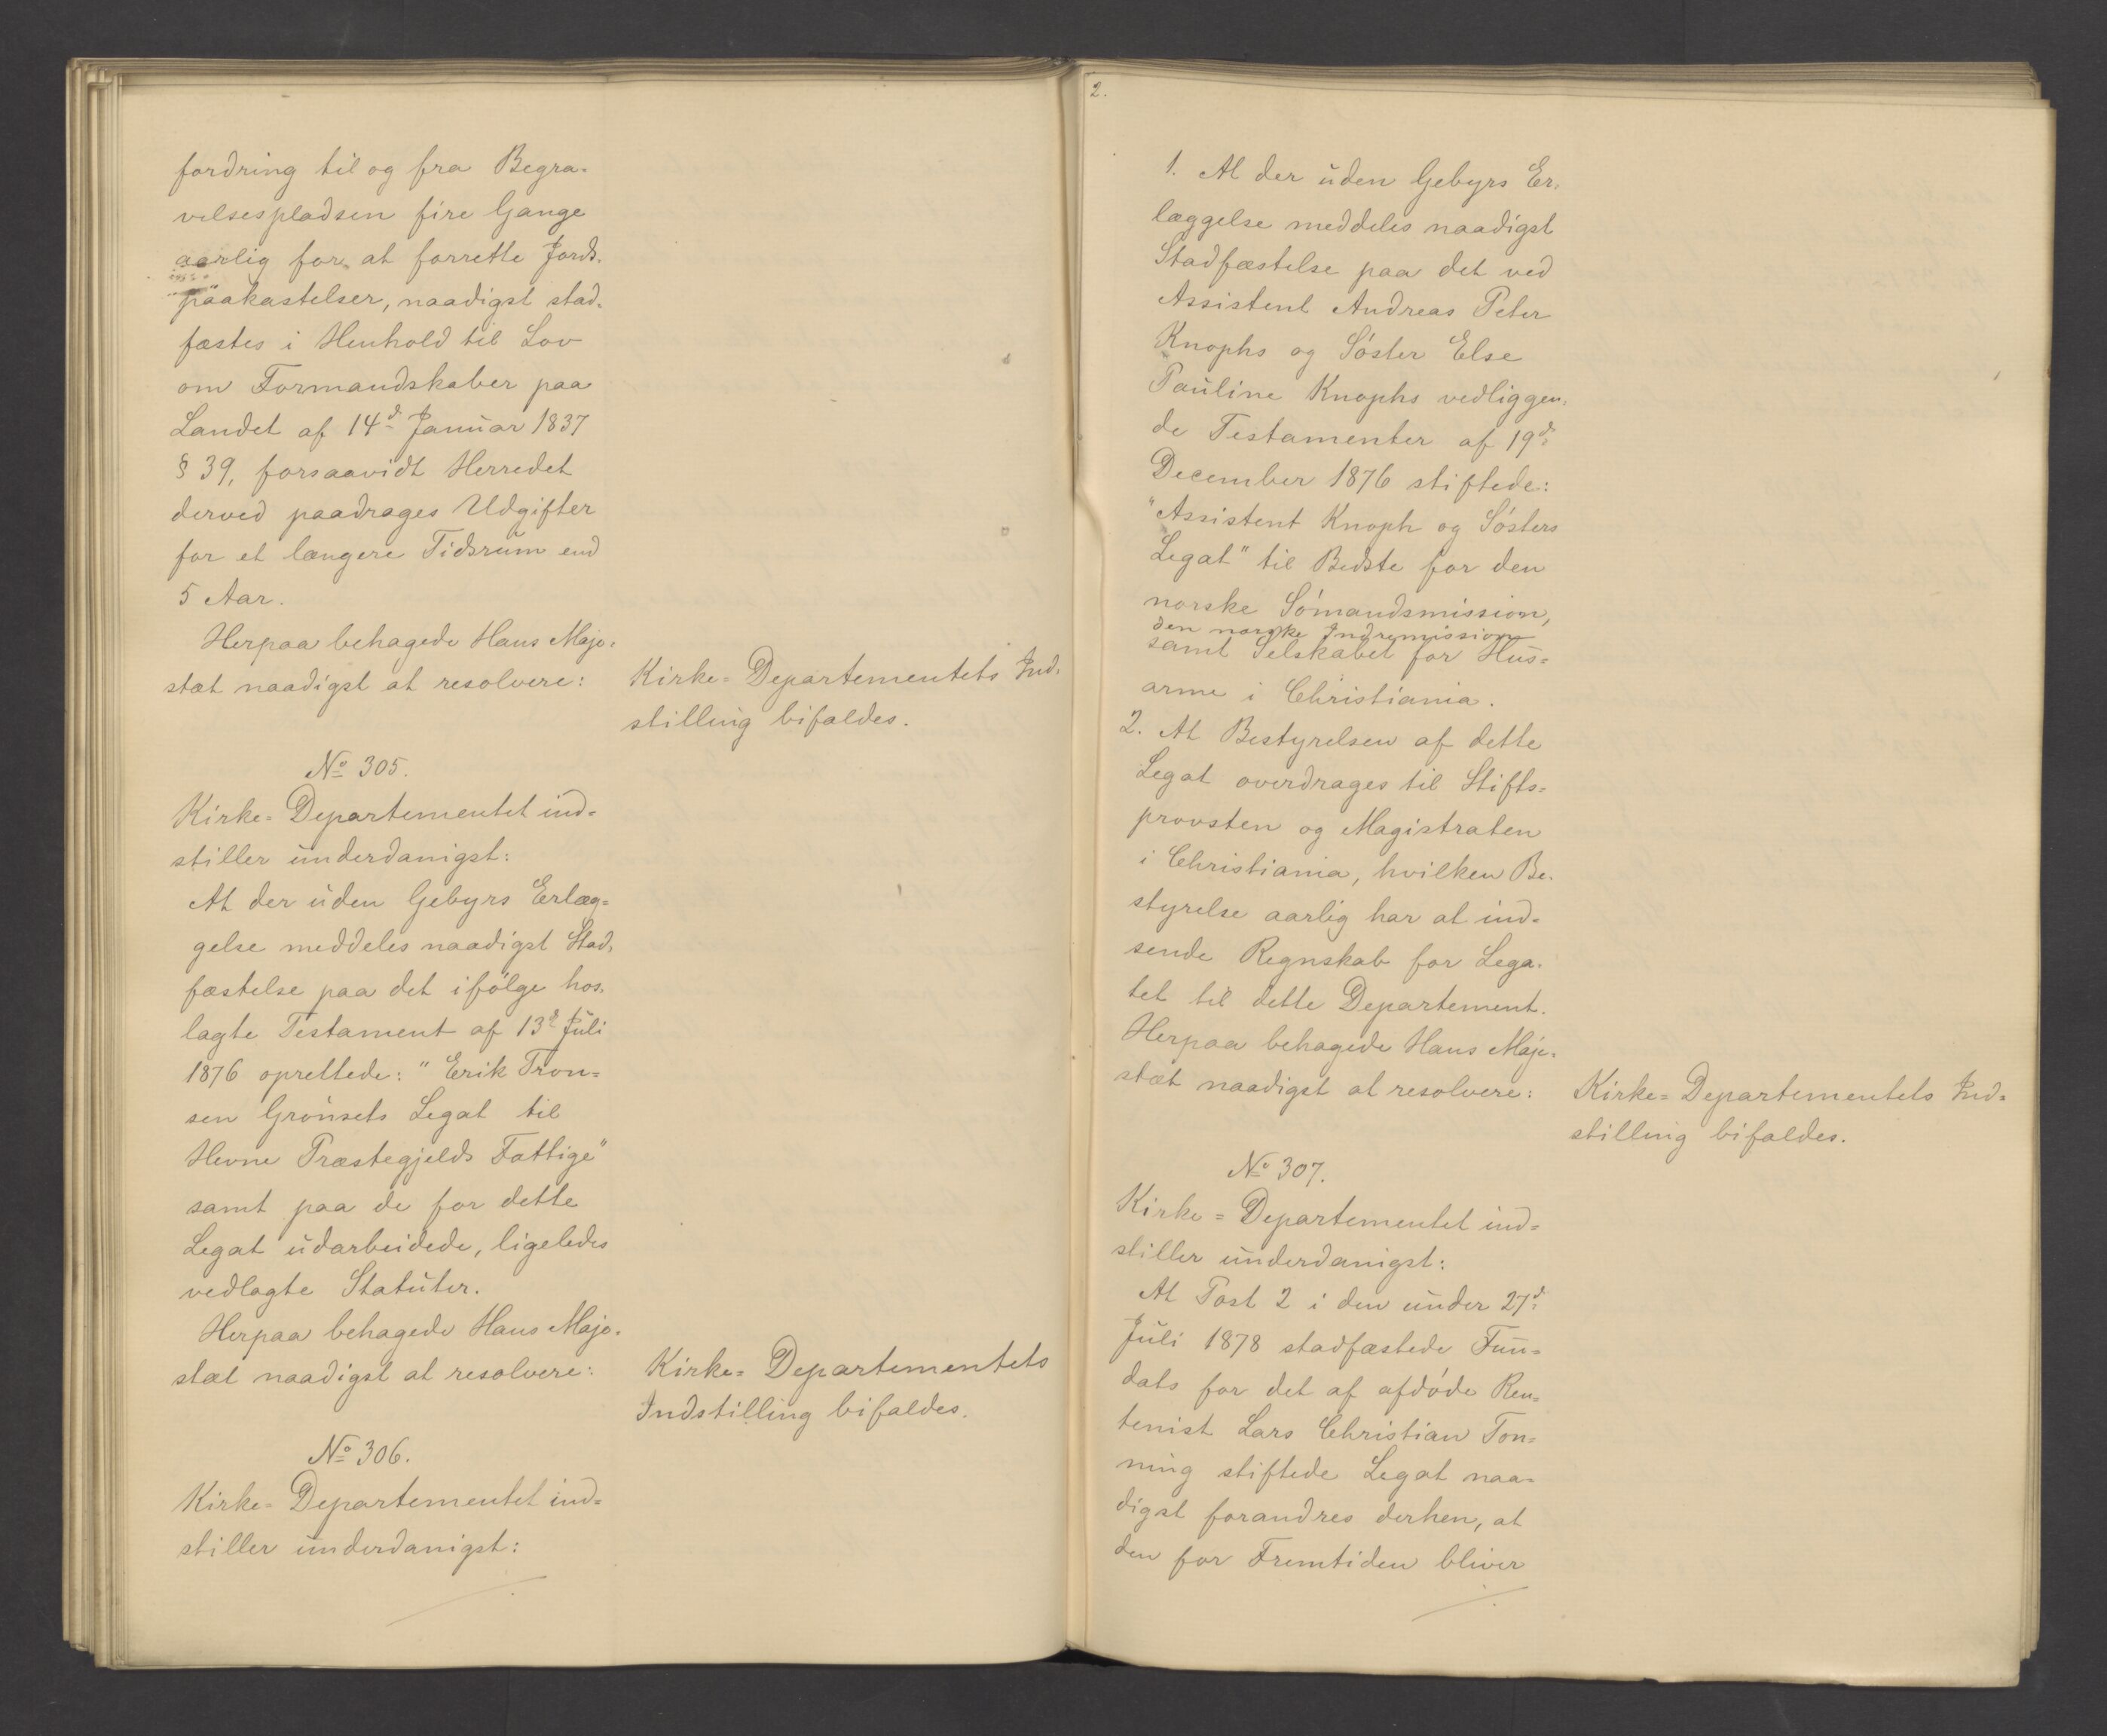 fordring til og fra Begra-
velsespladsen fire Gange
aarlig for at forrette Jords-
paakastelser, naadigst stad-
fæstes i Henhold til Lov
om Formandskaber paa
Landet af 14d Januar 1837
§ 39, forsaavidt Herredet
derved paadrages Udgifter
for et længere Tidsrum end
5 Aar.
Herpaa behagede Hans Maje-
stæt naadigst at resolvere:
Kirke-Departementets Ind-
stilling bifaldes.
No 305.
Kirke-Departementet ind-
stiller underdanigst:
At der uden Gebyrs Erlæg-
gelse meddeles naadigst Stad-
fæstelse paa det ifølge hos-
lagte Testament af 13d Juli
1876 oprettede: "Erik Tron-
sen Grønsets Legat til
Hevne Præstegjelds Fattige"
samt paa de for dette
Legat udarbeidede, ligeledes
vedlagte Statuter.
Herpaa behagede Hans Maje-
stæt naadigst at resolvere:
Kirke-Departementets
Indstilling bifaldes.
No 306.
Kirke-Departementet ind-
stiller underdanigst:
2.
1. At der uden Gebyrs Er-
læggelse meddeles naadigst
Stadfæstelse paa det ved
Assistent Andreas Peter
Knophs og Søster Else
Pauline Knophs vedliggen-
de Testamenter af 19d
December 1876 stiftede:
"Assistent Knoph og Søsters
Legat" til Bedste for den
norske Sømandsmission,
den norske Indremission
samt Selskabet for Hus-
arme i Christiania.
2. At Bestyrelsen af dette
Legat overdrages til Stifts-
provsten og Magistraten
i Christiania, hvilken Be-
styrelse aarlig har at ind-
sende Regnskab for Lega-
tet til dette Departement.
Herpaa behagede Hans Maje-
stæt naadigst at resolvere:
Kirke-Departementets Ind-
stilling bifaldes.
No 307.
Kirke-Departementet ind-
stiller underdanigst:
At Post 2 i den under 27d
Juli 1878 stadfæstede Fun-
dats for det af afdøde Ren-
tenist Lars Christian Ton-
ning stiftede Legat naa-
digst forandres derhen, at
den for Fremtiden bliver